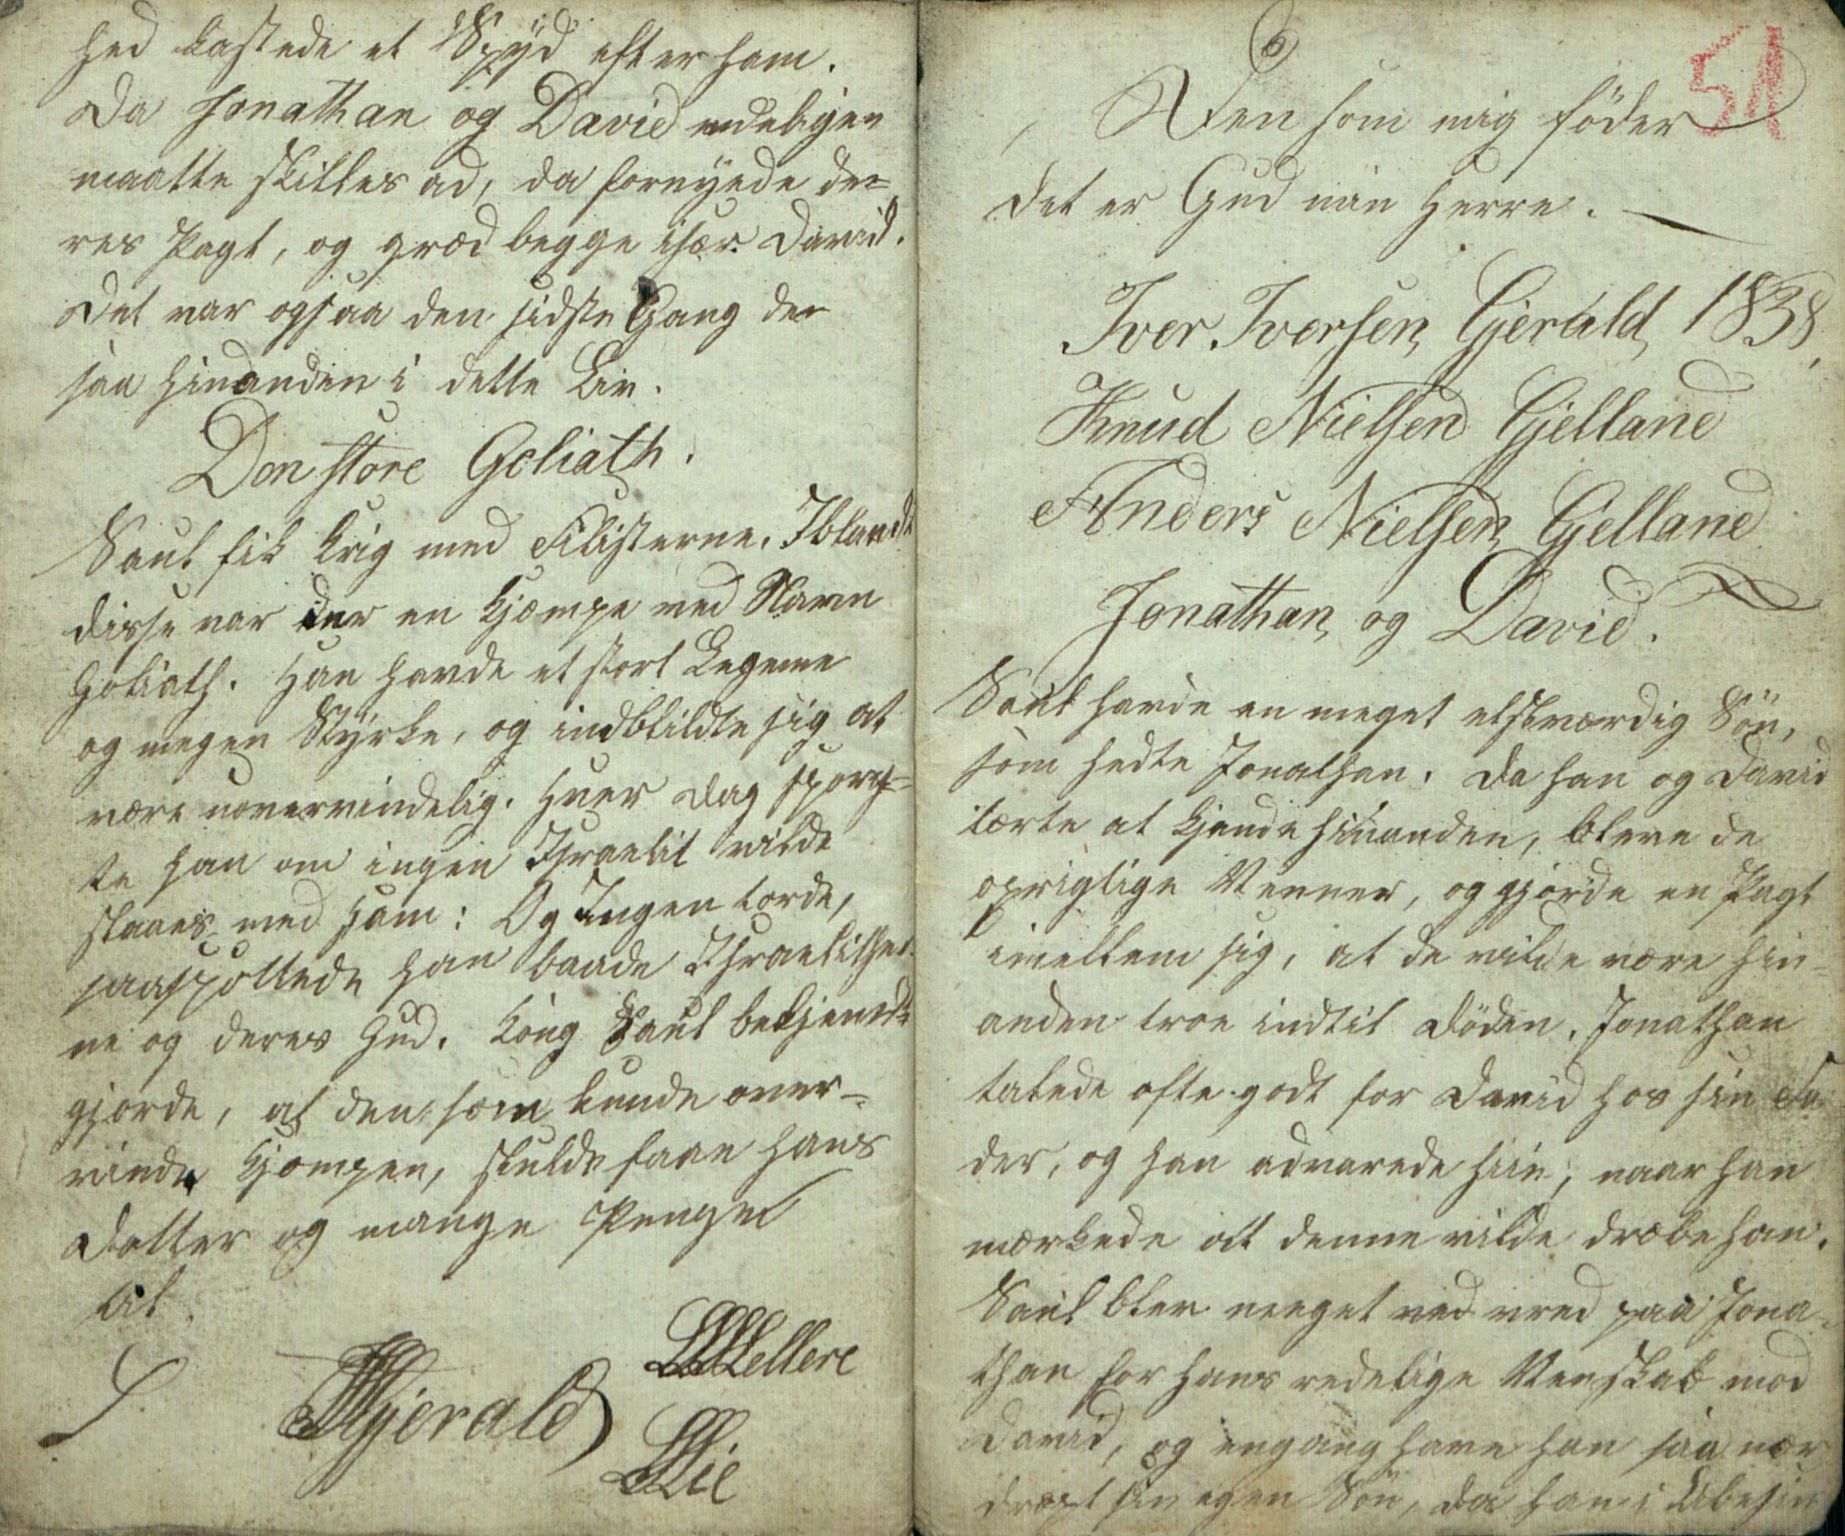 hed kastede et Spyd efter ham.
Da Jonathan og David endeligen
maatte skilles ad, da fornyede de=
res Pagt, og græd begge især David.
Det var ogsaa den sidste Gang de
saa hinanden i dette Liv.
Den store Goliath.
Saul fik Krig med Filisterne. Iblandt
disse var der en Kjæmpe ved Navn
Goliath. Han havde et stort Legeme
og megen Styrke, og indbildte sig at
være uovervindelig. Hver Dag spurg=
te han om ingen Israelit vilde
slaaes med ham: Og Ingen torde,
saa spottede han baade Israelither
ne og deres Gud. Kong Saul bekjendt
gjorde, at den som kunde over=
vinde Kjæmpen, skulde faae hans
Datter og mange Penge
til.
Gjerald
Mellere
Lie
6
51
Den som mig föder
det er Gud min Herre.
Iver Iversen Gjerald, 1838,
Knud Nielsen Gjelland
Anders Nielsen Gjelland
Jonathan og David.
Saul havde en meget elskværdig Sön,
som hedte Jonathan. Da han og David
lærte at kjende hinanden, bleve de
oprigtige Venner, og gjörde en Pagt
imellem sig, at de vilde være hin=
anden troe indtil Döden. Jonathan
talede ofte godt for David hos sin Fa
der, og han advarede hiin, naar han
mærkede at denne vilde dræbe ham.
Saul blev meget vred paa Jona=
than for hans redelige Venskab mod
David, og engang have han saa nær
dræpt sin egen Sön, da han i Ilske sin